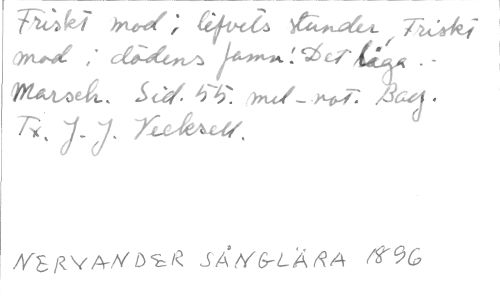 Friskt mod i lifvets stunder, Friskt
mod i dödens famn! Det låga..
Marsch. Sid. 55. mel-not. Bacz.
Tx. J. J. Vecksell.
NERVANDER SÅNGLÄRA 1896